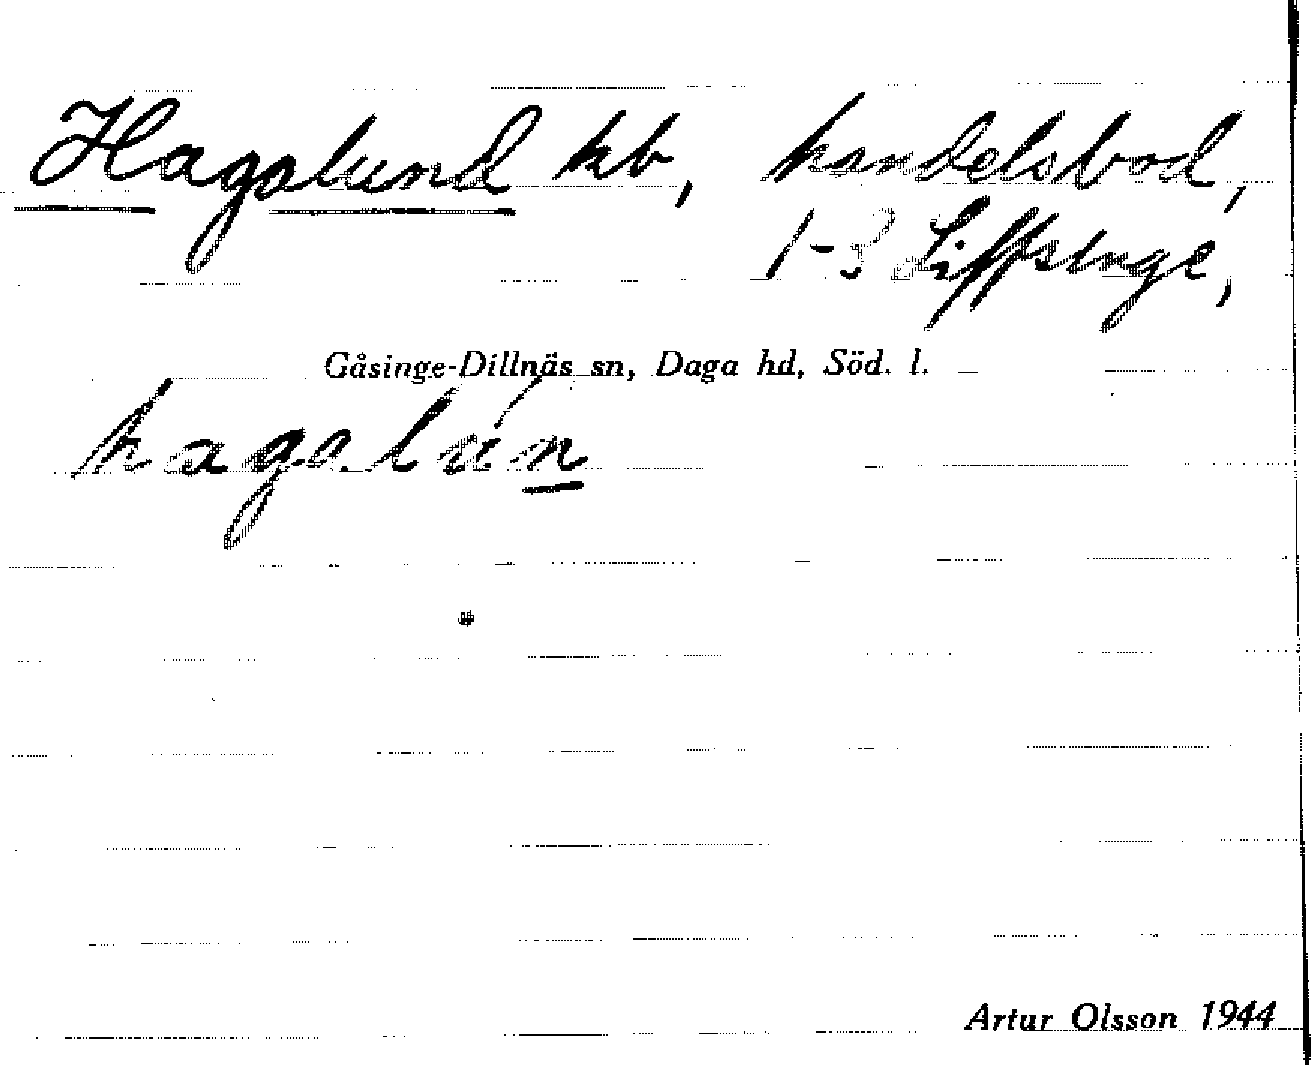 Hagalund hb, handelsbod,
1-3 Liffsinge,
Gåsinge-Dillnäs sn, Daga hd, Söd. l.
hagalún
Artur Olsson 1944